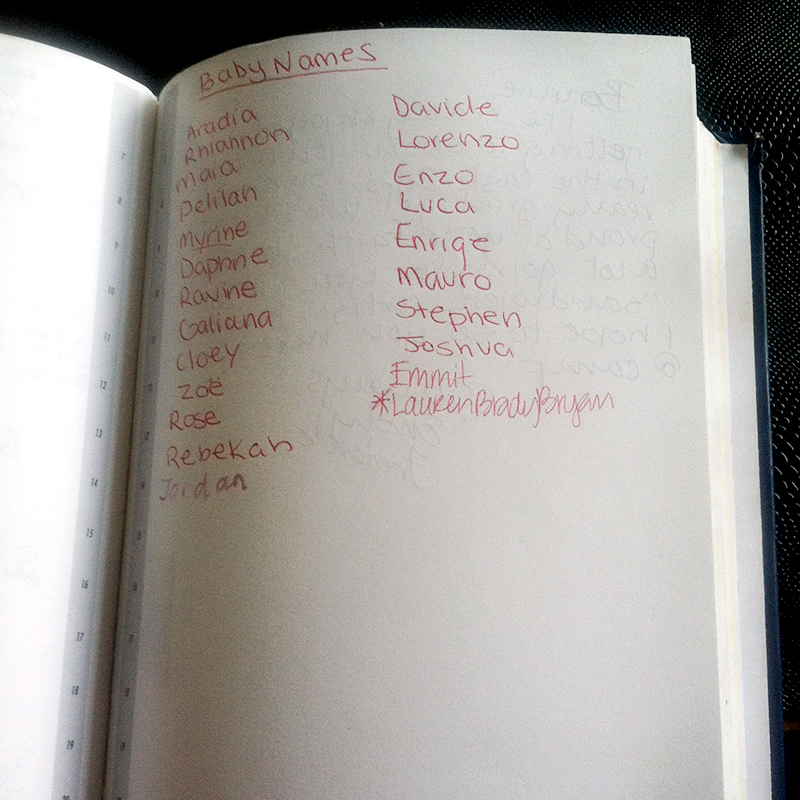 Baby Names
Aradia
Rhiannon
maia
Delilah
Myrine
Daphne
Ravine
Galiana
Cloey
Zoë
Rose
Rebekah
Jordan
Davide
Lorenzo
Enzo
Luca
Enriqe
Mauro
Stephen
Joshua
Emmit
*LaurenBradyBryan
7
8
9
10
11
12
13
14
15
16
17
18
19